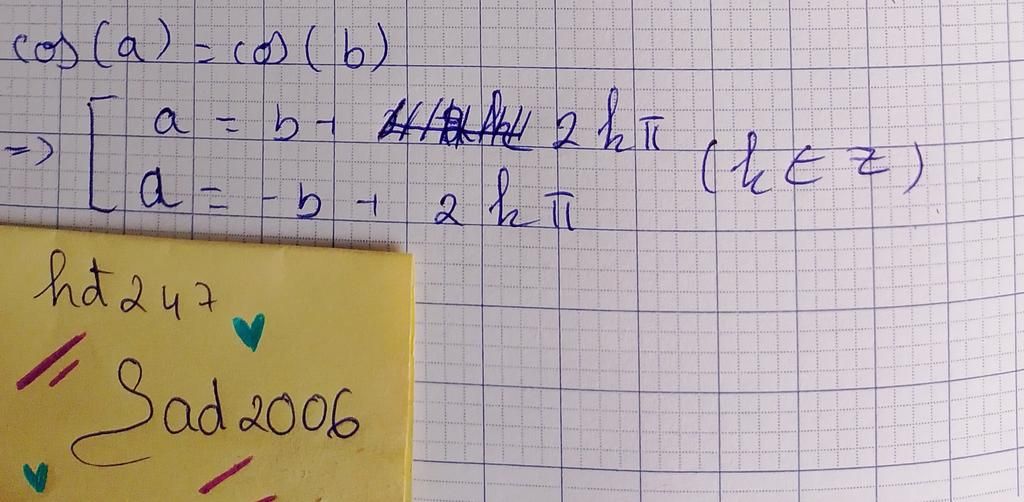 cos(a) = cos(b)
=> [ a = b + 2kπ
a = -b + 2kπ (k ∈ Z)
hđ247
Sad2006